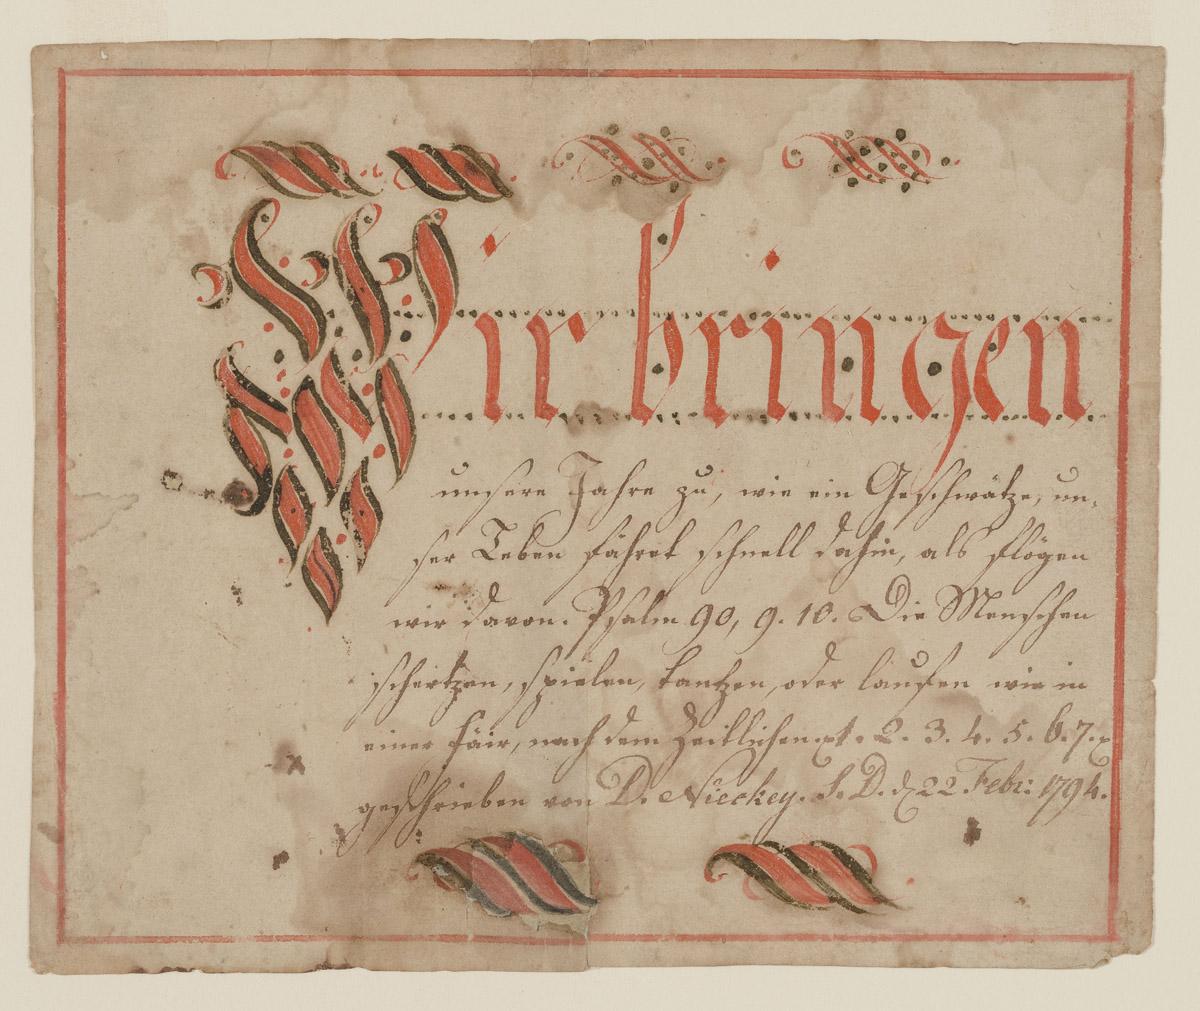 Wir bringen
unsere Jahre zu, wie ein Geschwätze, un-
ser Leben fähret schnell dahin, als flögen
wir davon. Psalm 90, 9. 10. Die Menschen
schertzen, spielen, tantzen, oder laufen wie in
einer fäir, nach dem Zeitlichen 2. 3. 4. 5. 6. 7.
geschrieben von D. Nieckey. S. D. d 22 Febr: 1794.